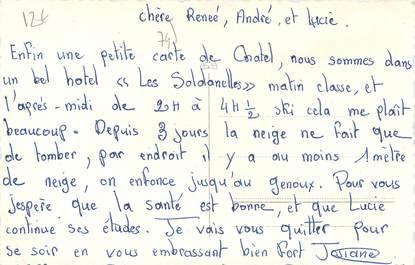 12t
chère Reneé, André, et Lucie.
74
Enfin une petite carte de Chatel, nous sommes dans
un bel hotel « Les Soldanelles » matin classe, et
l'après-midi de 2H à 4H½ ski cela me plaît
beaucoup. Depuis 3 jours la neige ne fait que
de tomber, par endroit il y a au moins 1 mètre
de neige, on enfonce jusqu'au genoux. Pour vous
jespère que la santé est bonne, et que Lucie
continue ses études. Je vais vous quitter pour
se soir en vous embrassant bien fort Josiane